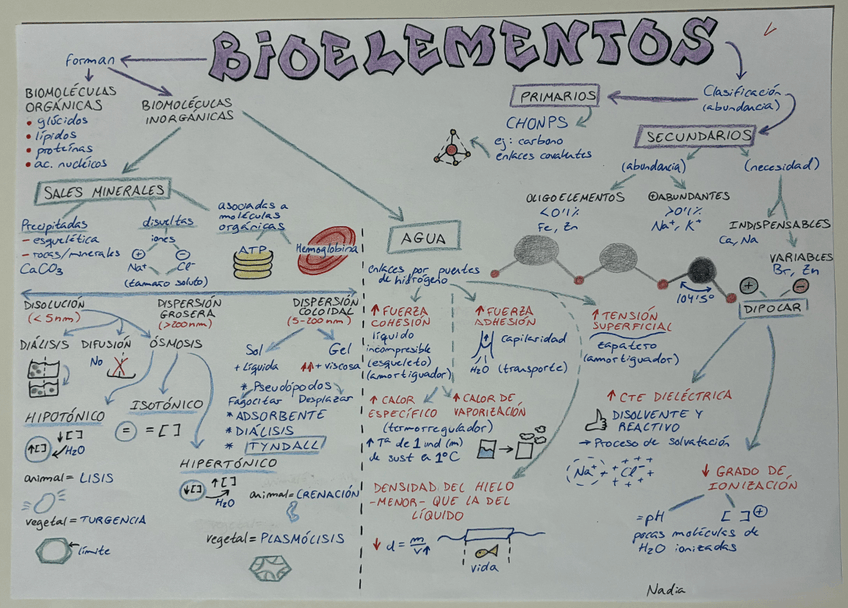 BiOELEMENTOS
Forman
BIOMOLÉCULAS
ORGÁNICAS
• glúcidos
• lípidos
• proteínas
• ac. nucléicos
BIOMOLÉCULAS
INORGÁNICAS
Clasificación
(abundancia)
PRIMARIOS
CHONPS
ej: carbono
enlaces covalentes
SECUNDARIOS
(abundancia)
(necesidad)
OLIGOELEMENTOS
<0'1%
Fe, Zn
⊕ABUNDANTES
>0'1%
Na⁺, K⁺
INDISPENSABLES
Ca, Na
VARIABLES
Br, Zn
SALES MINERALES
Precipitadas
- esquelética
- rocas/minerales
CaCO₃
disueltas
iones
⊕ ⊖
Na⁺ Cl⁻
(tamaño soluto)
asociadas a
moléculas
orgánicas
ATP
Hemoglobina
DISOLUCIÓN
(<5nm)
DISPERSIÓN
GROSERA
(>200nm)
DISPERSIÓN
COLOIDAL
(5-200nm)
DIÁLISIS
DIFUSIÓN
No
ÓSMOSIS
HIPOTÓNICO
↑[ ] ↓[ ]
H₂O
animal = LISIS
vegetal = TURGENCIA
límite
ISOTÓNICO
= = [ ]
HIPERTÓNICO
↓[ ] ↑[ ]
H₂O
animal = CRENACIÓN
vegetal = PLASMÓLISIS
Sol
+ líquida
Gel
↑↑ + viscosa
* Pseudópodos
Fagocitar Desplazar
* ADSORBENTE
* DIÁLISIS
* TYNDALL
AGUA
enlaces por puentes
de hidrógeno
104'5°
⊕ ⊖
DIPOLAR
↑ FUERZA
COHESIÓN
líquido
incompresible
(esqueleto)
(amortiguador)
↑ FUERZA
ADHESIÓN
↑ capilaridad
H₂O (transporte)
↑ TENSIÓN
SUPERFICIAL
zapatero
(amortiguador)
↑ CALOR
ESPECÍFICO
(termorregulador)
↑ Tª de 1 ind (m)
de sust a 1°C
↑ CALOR DE
VAPORIZACIÓN
DENSIDAD DEL HIELO
-MENOR- QUE LA DEL
LÍQUIDO
↓ d = m/v↑
vida
↑ CTE DIELÉCTRICA
DISOLVENTE Y
REACTIVO
→ Proceso de solvatación
Na⁺ Cl⁻
↓ GRADO DE
IONIZACIÓN
= pH
[ ]⊕
pocas moléculas de
H₂O ionizadas
Nadia